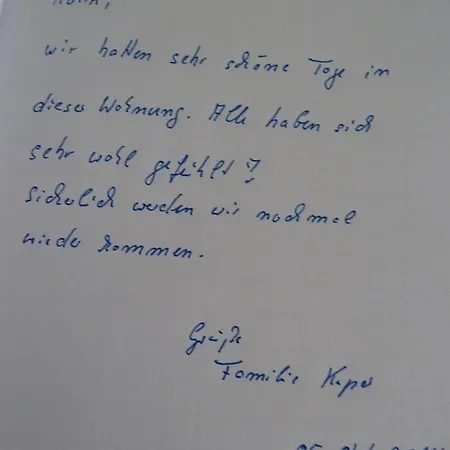 wir hatten sehr schöne Tage in
dieser Wohnung. Alle haben sich
sehr wohl gefühlt!
Sicherlich werden wir nochmal
wieder kommen.
Grüße
Familie